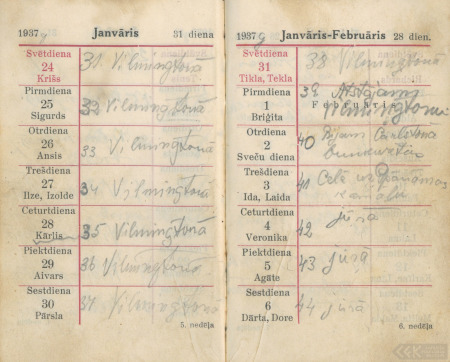 1937 Janvāris 31 diena
Svētdiena
24
Krišs
31 Vilmingtonā
Pirmdiena
25
Sigurds
32 Vilmingtonā
Otrdiena
26
Ansis
33 Vilmingtonā
Trešdiena
27
Ilze, Izolde
34 Vilmingtonā
Ceturtdiena
28
Kārlis
35 Vilmingtonā
Piektdiena
29
Aivars
36 Vilmingtonā
Sestdiena
30
Pārsla
37 Vilmingtonā
5. nedēļa
1937 Janvāris-Februāris 28 dien.
Svētdiena
31
Tikla, Tekla
38 Vilmingtonā
Pirmdiena
1
Briģita
39 Atstājam
Februāris
Vilmingtonu
Otrdiena
2
Sveču diena
40
Trešdiena
3
Ida, Laida
41 Ceļā uz Panamas
kanālu
Ceturtdiena
4
Veronika
42 jūrā
Piektdiena
5
Agate
43 jūrā
Sestdiena
6
Dārta, Dore
44 jūrā
6. nedēļa